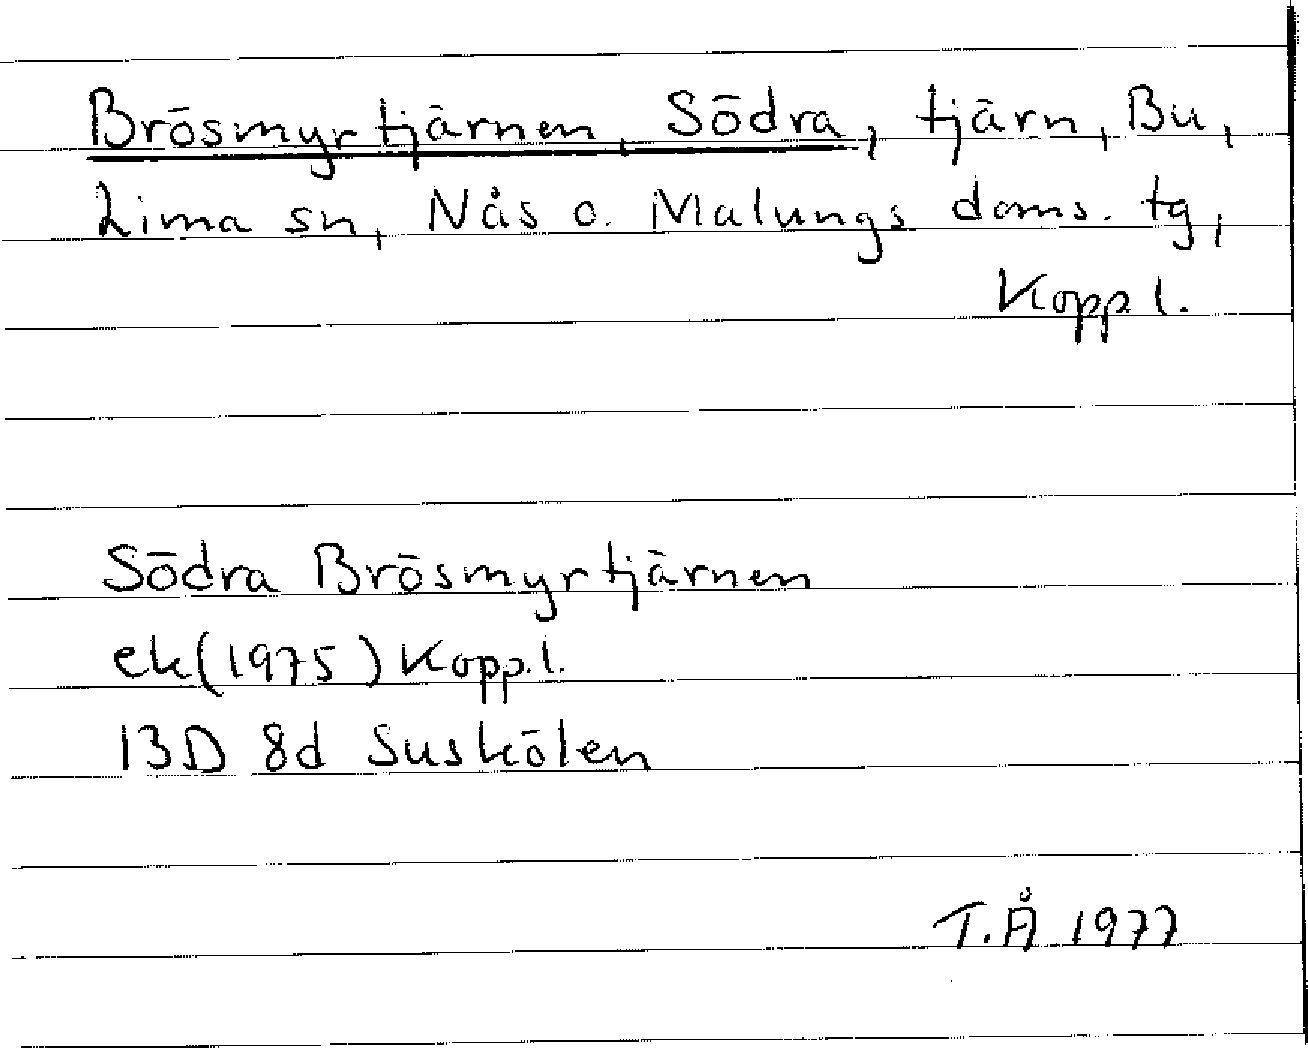 Brösmyrtjärnen, Södra, tjärn, Bu,
Lima sn, Nås o. Malungs doms. tg,
Kopp l.
Södra Brösmyrtjärnen
ek(1975) Kopp.l.
13D 8d Suskölen
T.Å 1977